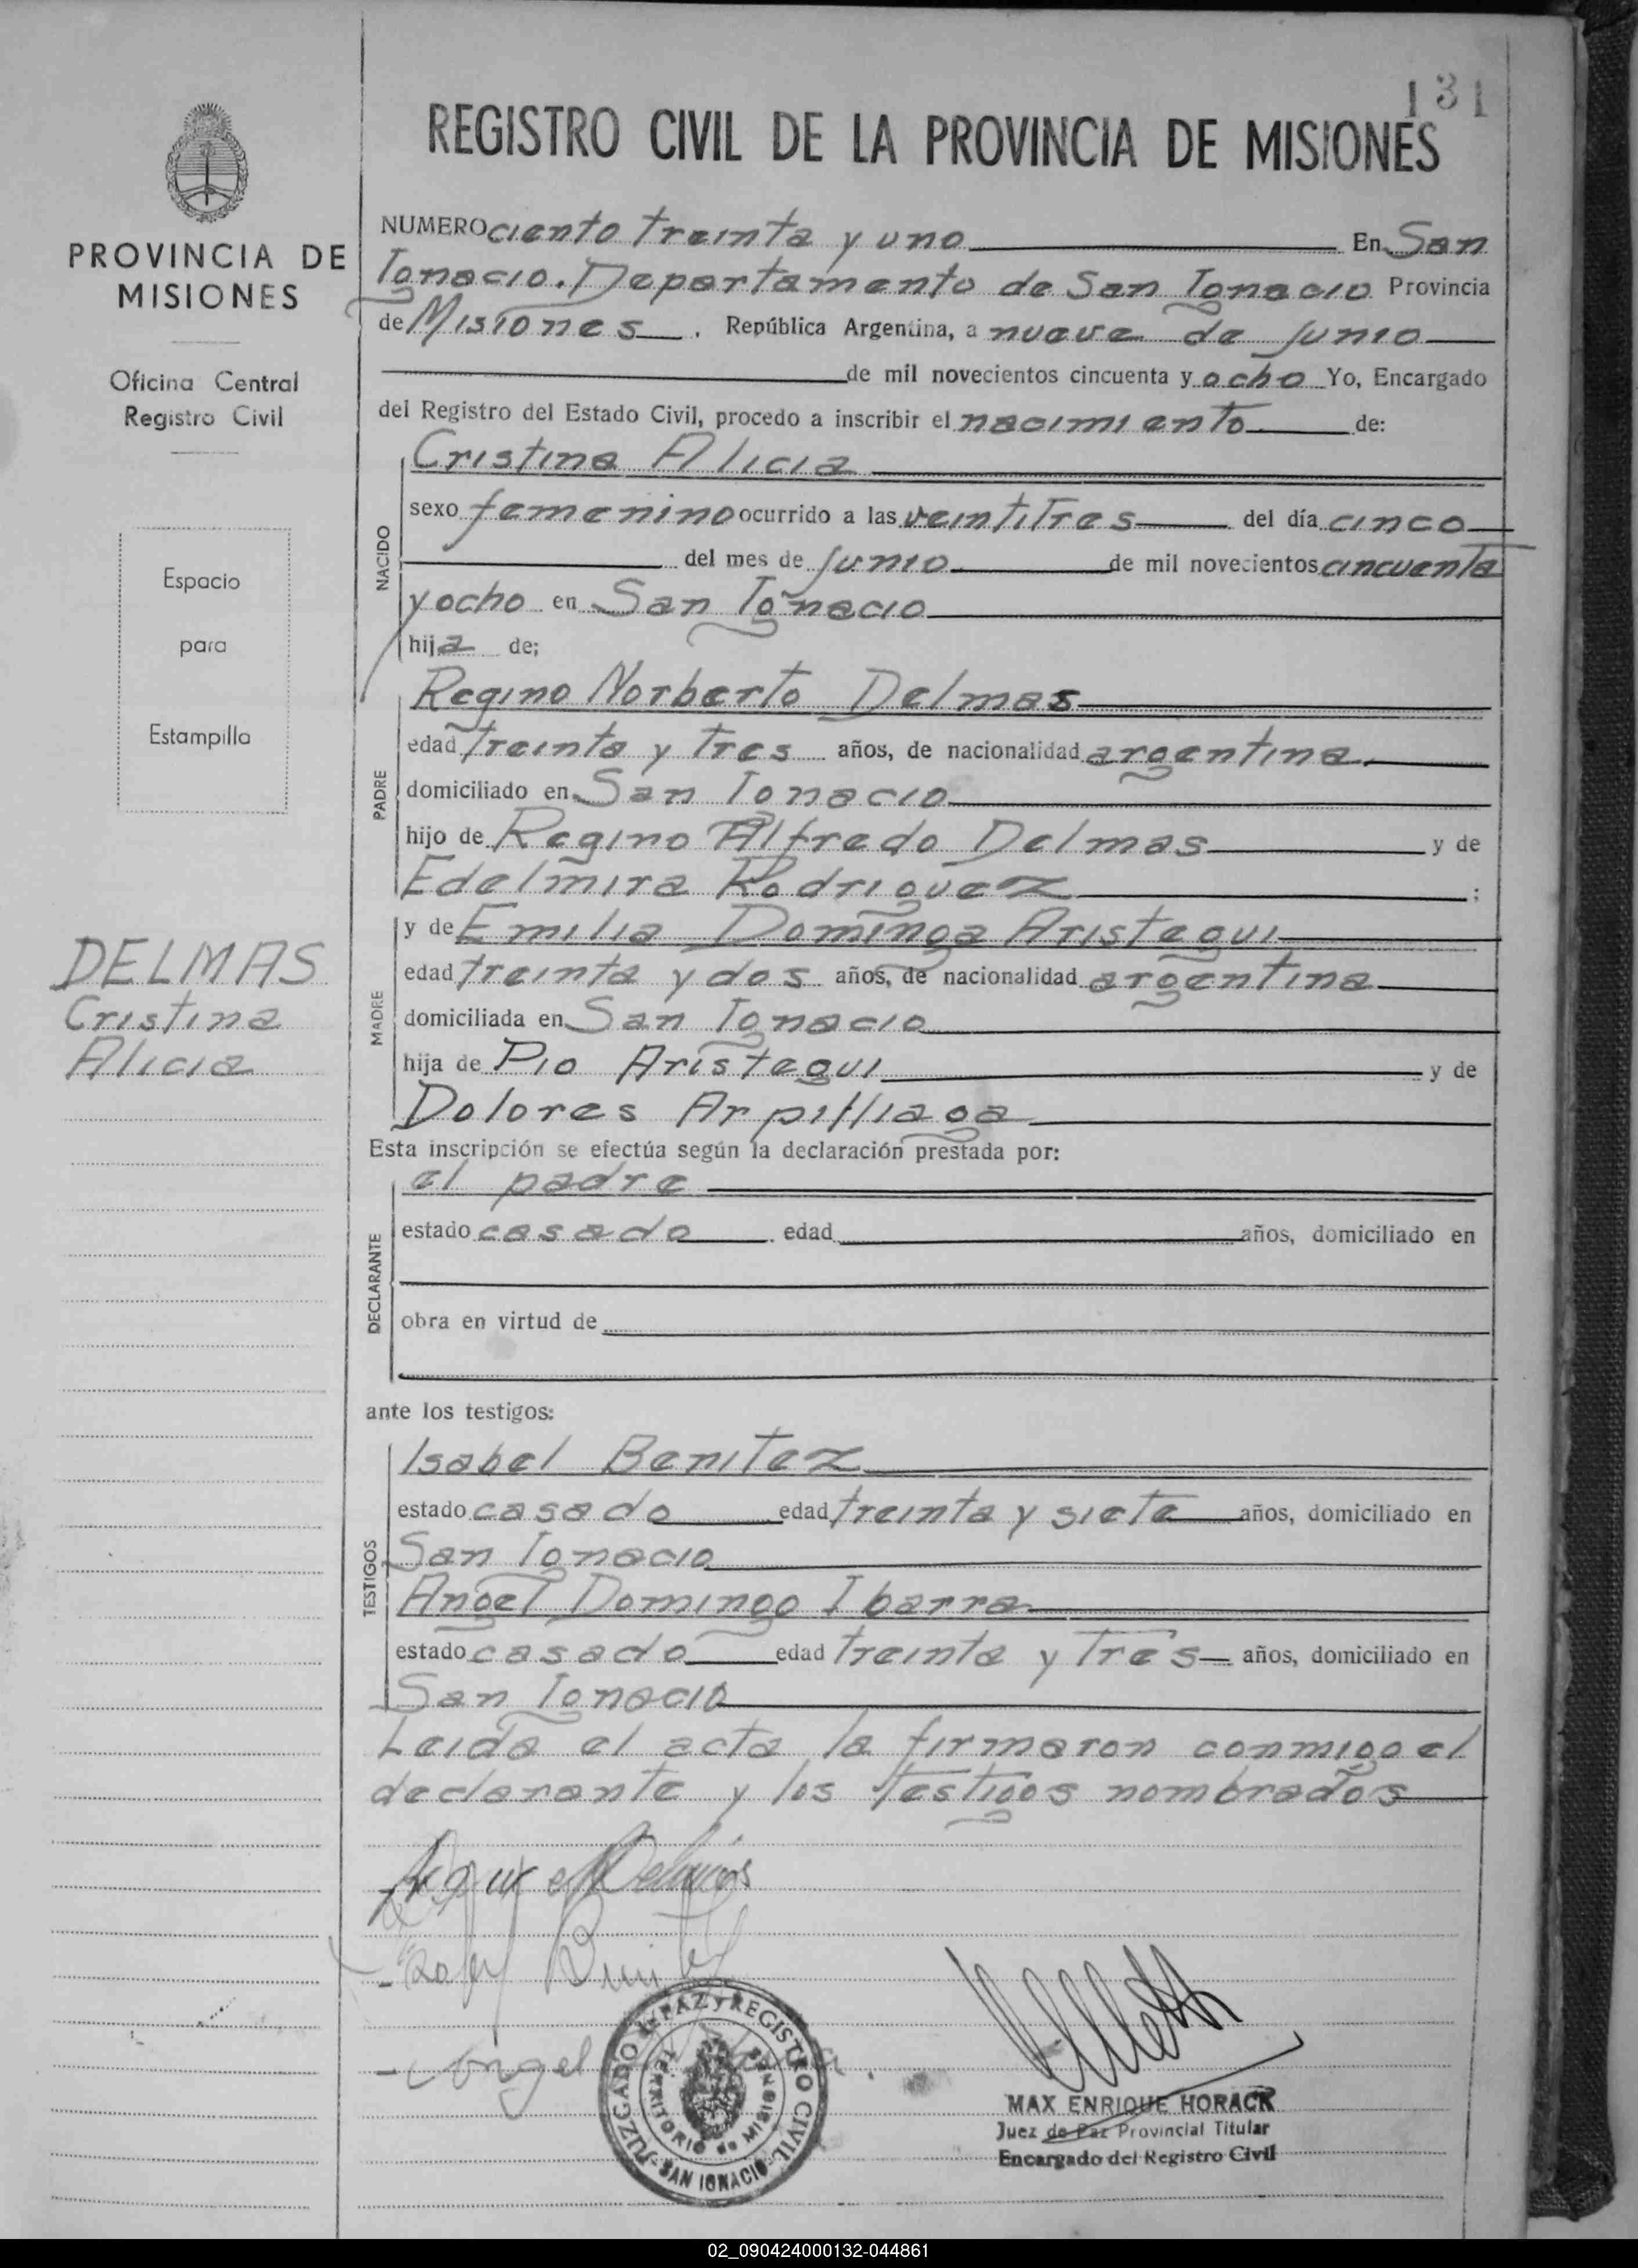 131
REGISTRO CIVIL DE LA PROVINCIA DE MISIONES
PROVINCIA DE
MISIONES
Oficina Central
Registro Civil
Espacio
para
Estampilla
DELMAS
Cristina
Alicia
NUMERO ciento treinta y uno En San
Ignacio. Departamento de San Ignacio Provincia
de Misiones. República Argentina, a nueve de junio
de mil novecientos cincuenta y ocho Yo, Encargado
del Registro del Estado Civil, procedo a inscribir el nacimiento de:
NACIDO
Cristina Alicia
sexo femenino ocurrido a las veintitres del día cinco
del mes de junio de mil novecientos cincuenta
y ocho en San Ignacio
hija de;
PADRE
Regino Norberto Delmas
edad treinta y tres años, de nacionalidad argentina.
domiciliado en San Ignacio
hijo de Regino Alfredo Delmas y de
Edelmira Rodriguez ;
MADRE
y de Emilia Dominga Aristegui
edad treinta y dos años, de nacionalidad argentina
domiciliada en San Ignacio
hija de Pio Aristegui y de
Dolores Arpilliaga
Esta inscripción se efectúa según la declaración prestada por:
DECLARANTE
el padre
estado casado edad años, domiciliado en
obra en virtud de
ante los testigos:
TESTIGOS
Isabel Benitez
estado casado edad treinta y siete años, domiciliado en
San Ignacio
Angel Domingo Ibarra
estado casado edad treinta y tres años, domiciliado en
San Ignacio
Leida el acta la firmaron conmigo el
declarante y los testigos nombrados
Delmas
Angel
JUZGADO de PAZ y REGISTRO CIVIL
TERRITORIO de MISIONES
SAN IGNACIO
MAX ENRIQUE HORACK
Juez de Paz Provincial Titular
Encargado del Registro Civil
02_090424000132-044861